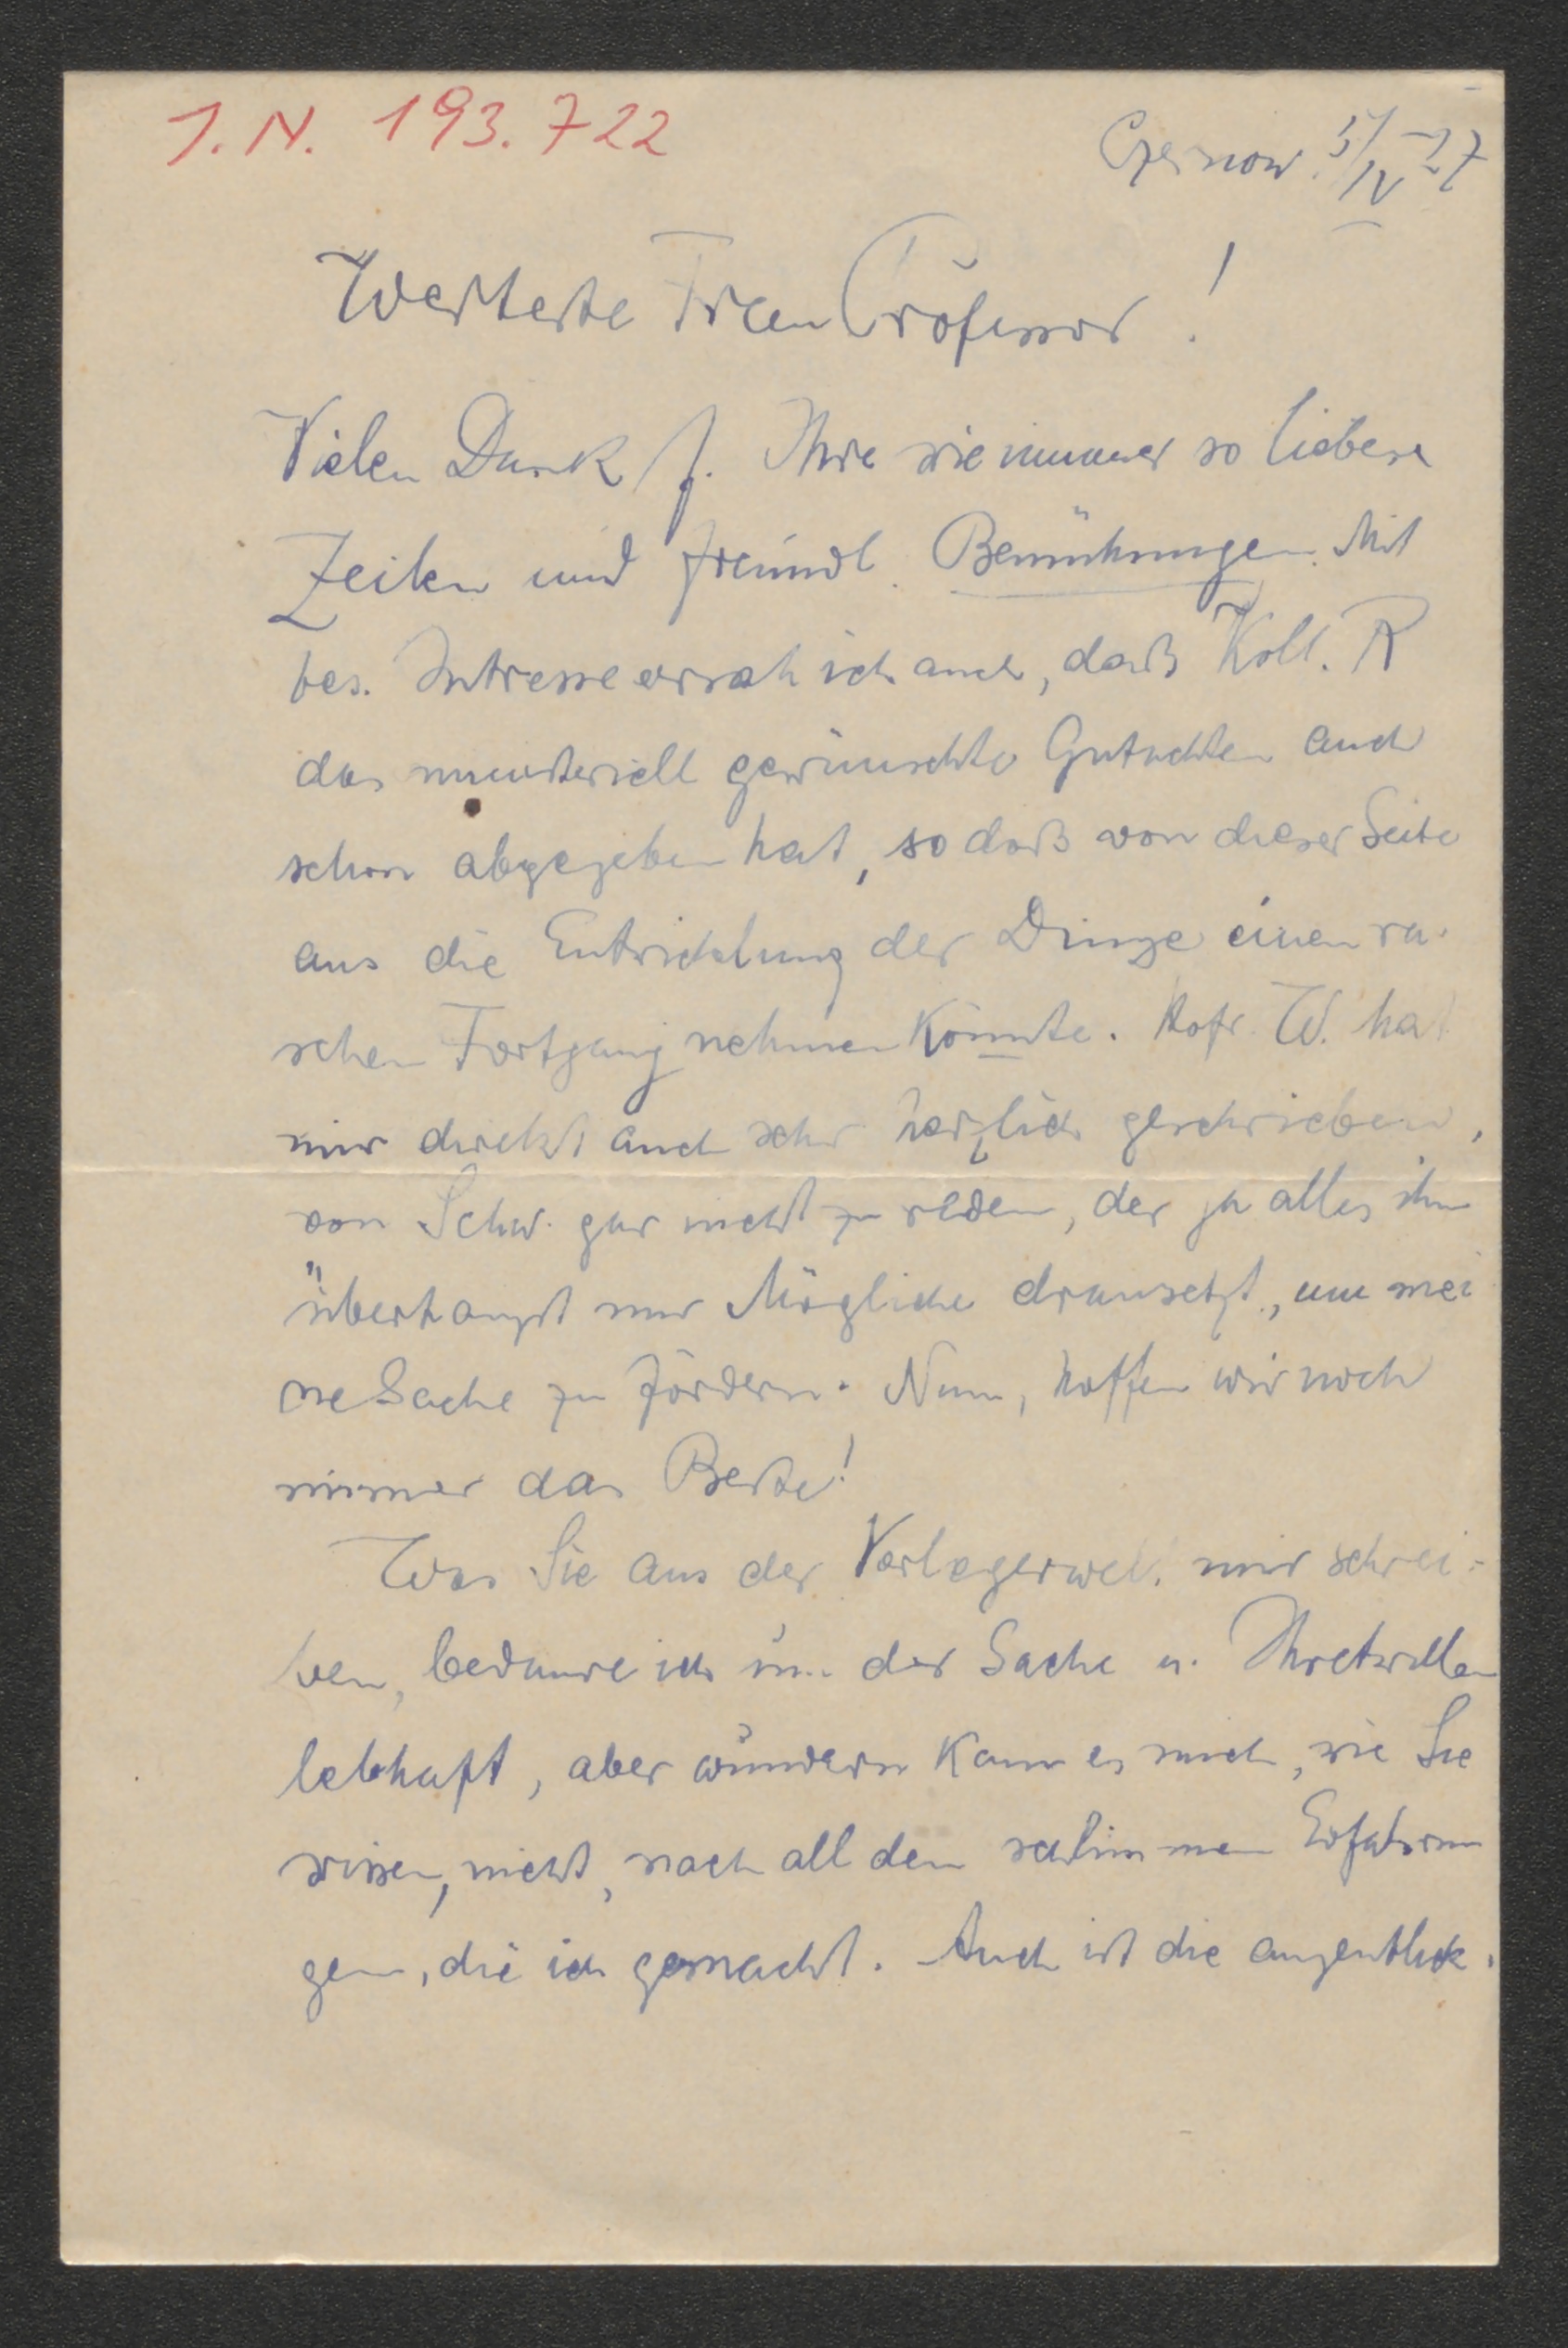 J.N. 193.722
Czernow. 5/IV 27
Werteste Frau Professor!
Vielen Dank f. Ihre wie immer so lieben
Zeilen und freundl. Bemühungen. Mit
bes. Intresse ersah ich auch, daß Koll. R
das ministeriell gewünschte Gutachten auch
schon abgegeben hat, so daß von dieser Seite
aus die Entwicklung der Dinge einen ra-
schen Fortgang nehmen könnte. Hofr. W. hat
mir direkt auch sehr herzlich geschrieben,
von Schw. gar nicht zu reden, der ja alles ihm
überhaupt nur Mögliche dransetzt, um mei
ne Sache zu fördern. Nun, hoffen wir noch
immer das Beste!
Was Sie aus der Verlegerwelt mir schrei-
ben, bedaure ich um der Sache u. Ihretwillen
lebhaft, aber wundern kann es mich, wie Sie
wissen, nicht, nach all den schlimmen Erfahrun
gen, die ich gemacht. Auch ist die augenblick-